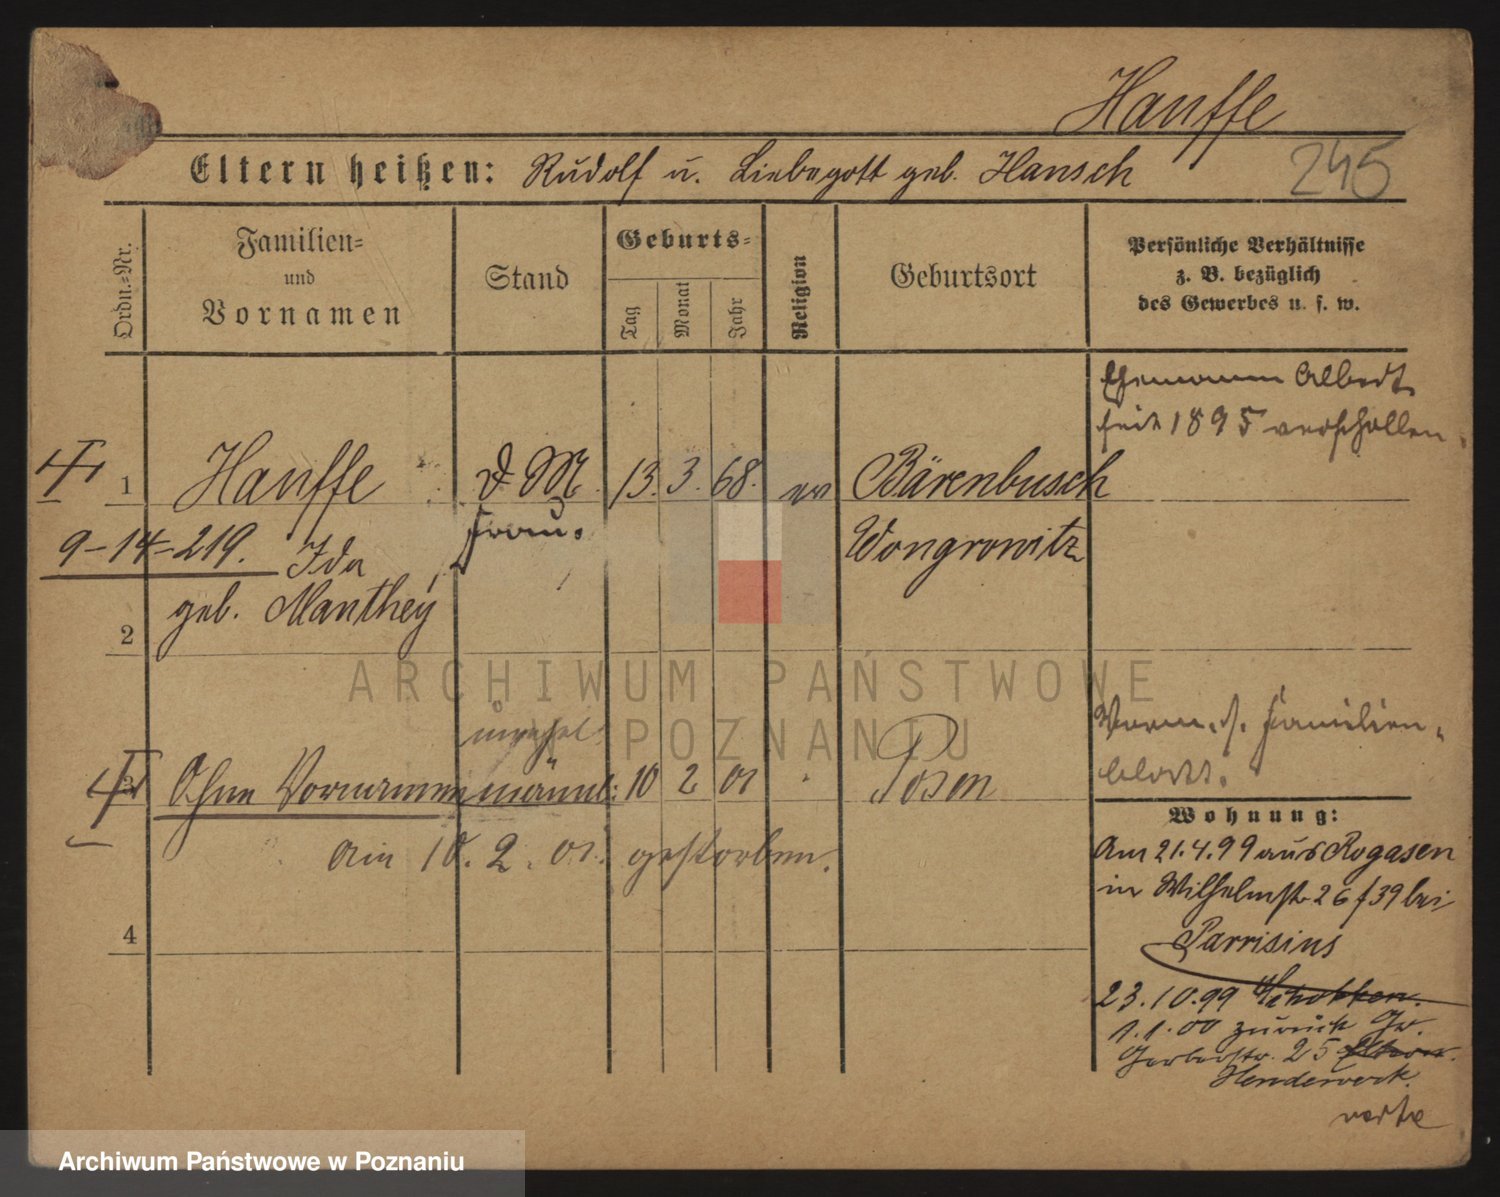 Hauffe
Eltern heißen: Rudolf u. Liebegott geb. Hansch
245
Ordn.-Nr.
Familien-
und
Vornamen
Stand
Geburts-
Tag
Monat
Jahr
Religion
Geburtsort
Persönliche Verhältnisse
z. B. bezüglich
des Gewerbes u. s. w.
Ehemann Albert
seit 1895 verschollen.
1 Hauffe d. M. 13. 3. 68. ev Bärenbusch
9-14-219. Ida Frau. Wongrowitz
geb. Manthey
2
ARCHIWUM PAŃSTWOWE
W POZNANIU
unehel.
Vorm. s. Familien-
blatt.
3 Ohne Vornamen männl: 10 2 01 Posen
am 10. 2. 01. gestorben.
4
Wohnung:
Am 21.4.99 aus Rogasen
in Wilhelmstr 26 f 39 bei
Parrisius
23.10.99 Schokken.
1.1.00 zurück Gr.
Gerberstr. 25
Hendewerk.
verte
Archiwum Państwowe w Poznaniu